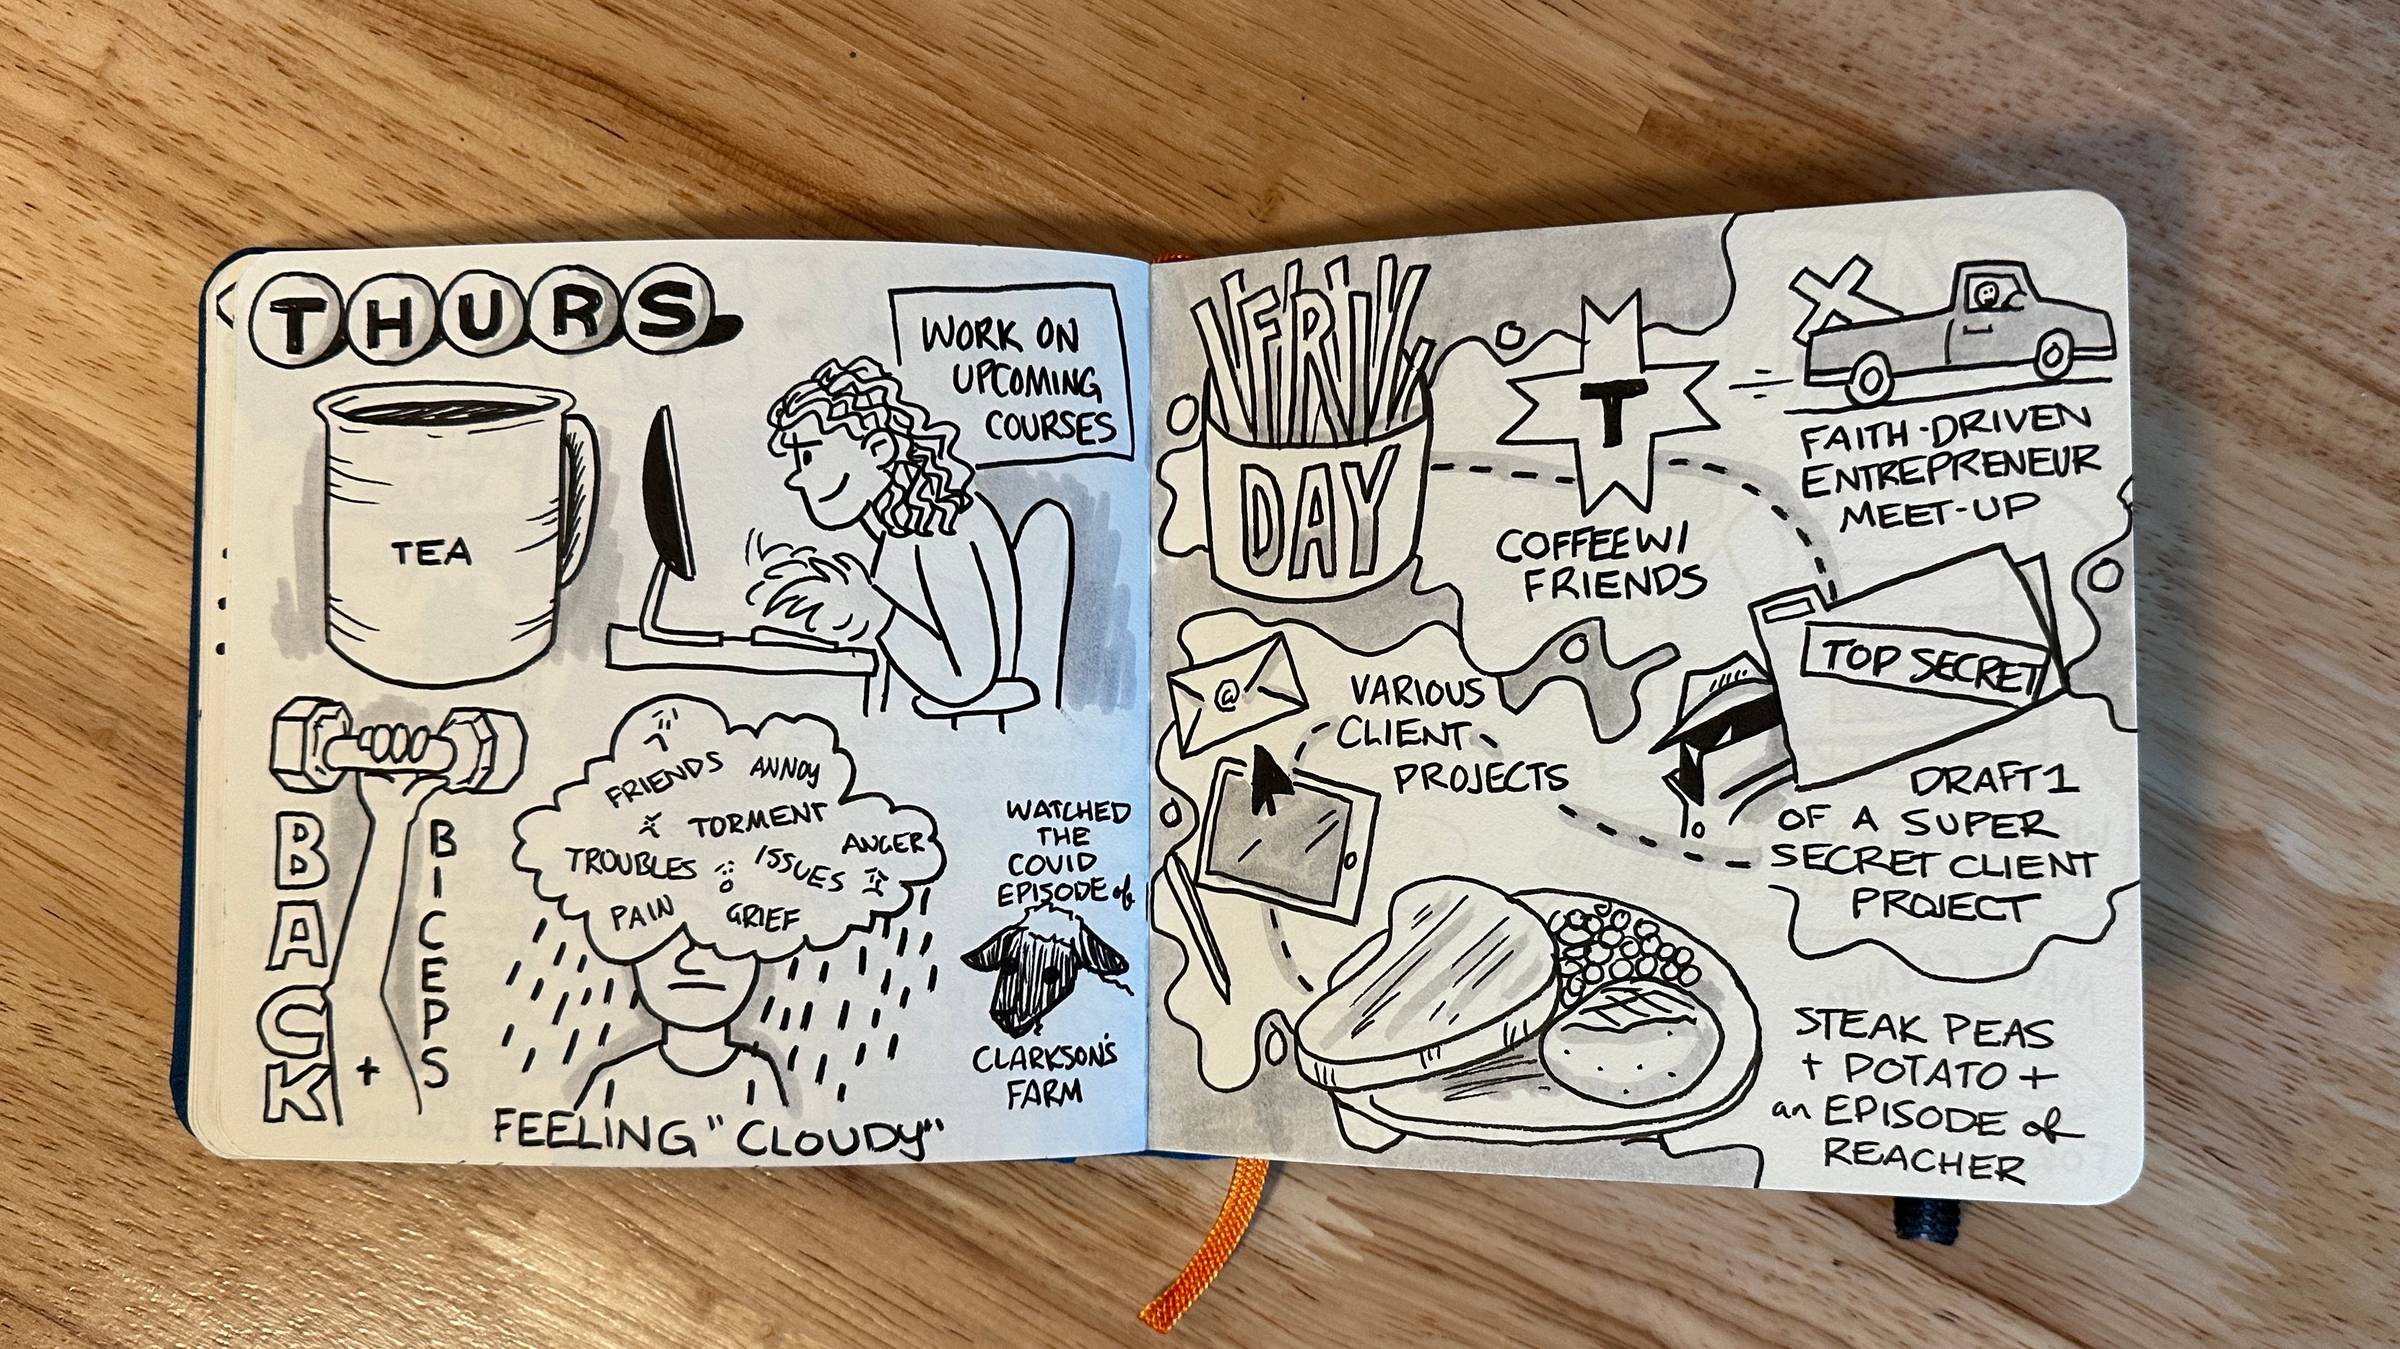 THURS
TEA
WORK ON
UPCOMING
COURSES
BACK
+
BICEPS
FRIENDS ANNOY
TORMENT
TROUBLES ISSUES ANGER
PAIN GRIEF
FEELING "CLOUDY"
WATCHED
THE
COVID
EPISODE of
CLARKSON'S
FARM
FRY
DAY
T
COFFEE W/
FRIENDS
FAITH-DRIVEN
ENTREPRENEUR
MEET-UP
TOP SECRET
DRAFT 1
OF A SUPER
SECRET CLIENT
PROJECT
@
VARIOUS
CLIENT
PROJECTS
STEAK PEAS
+ POTATO +
an EPISODE of
REACHER